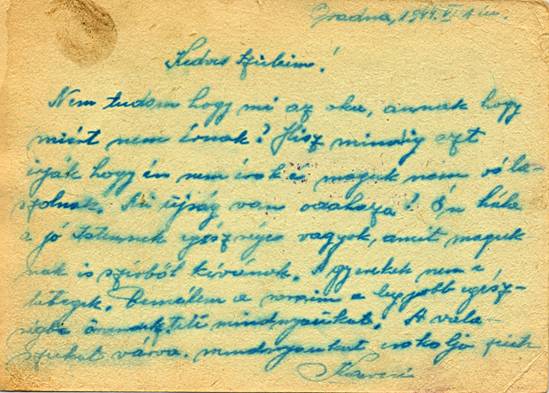 Gradna, 1944. VI. 1 én.
Kedves Szüleim!
Nem tudom hogy mi az oka, annak hogy
miért nem írnak? Hisz mindíg azt
írják hogy én nem írok és maguk nem vála-
szolnak. Mi újság van odahaza? Én hála
a jó Istennek egészséges vagyok, amit maguk
nak is szívből kívánok. A gyerekek nem e
betegek. Remélem a soraim a legjobb egész-
ségbe mindnyájukat. A vála-
szukat várva. mindnyájukat csókolja fiuk